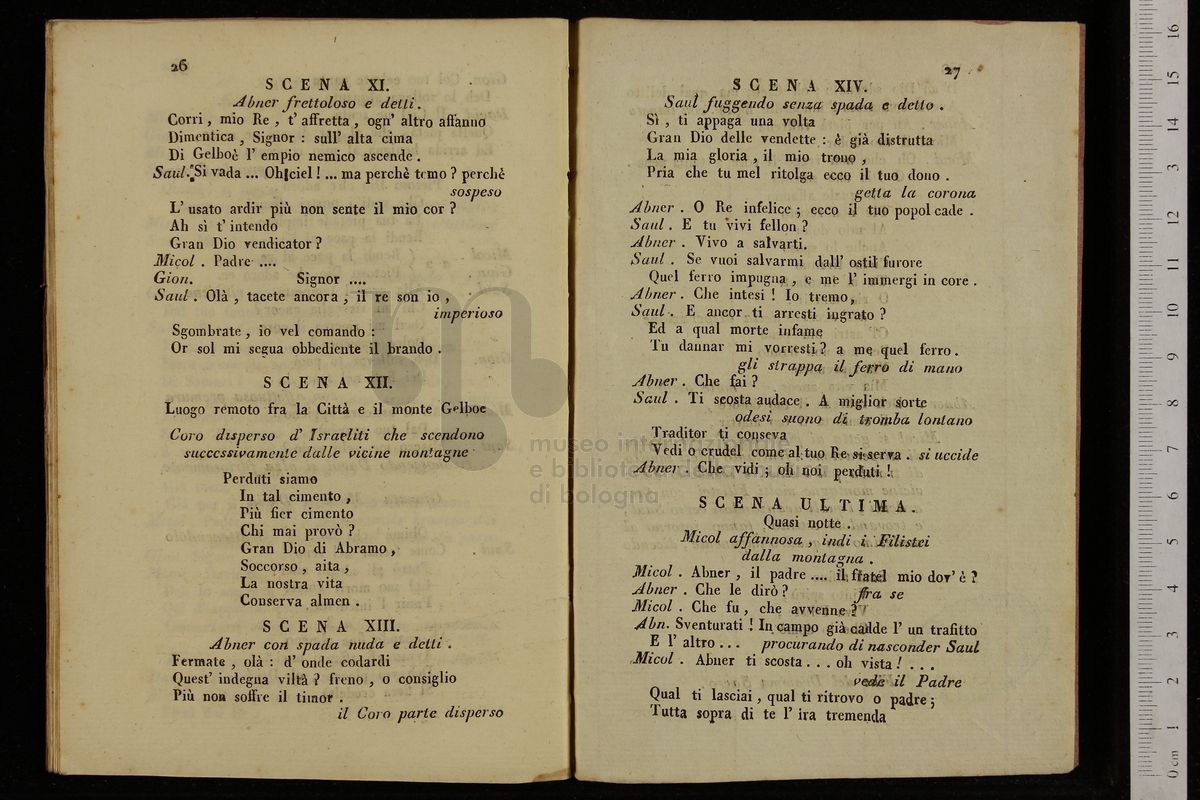 26
SCENA XI.
Abner frettoloso e detti.
Corri, mio Re, t' affretta, ogn' altro affanno
Dimentica, Signor: sull' alta cima
Di Gelboè l' empio nemico ascende.
Saul. Si vada ... Oh ciel! ... ma perchè temo? perchè
sospeso
L' usato ardir più non sente il mio cor?
Ah sì t' intendo
Gran Dio vendicator?
Micol. Padre ....
Gion. Signor ....
Saul. Olà, tacete ancora, il re son io,
imperioso
Sgombrate, io vel comando:
Or sol mi segua obbediente il brando.
SCENA XII.
Luogo remoto fra la Città e il monte Gelboe
Coro disperso d' Israeliti che scendono
successivamente dalle vicine montagne
Perduti siamo
In tal cimento,
Più fier cimento
Chi mai provò?
Gran Dio di Abramo,
Soccorso, aita,
La nostra vita
Conserva almen.
SCENA XIII.
Abner con spada nuda e detti.
Fermate, olà: d' onde codardi
Quest' indegna viltà? freno, o consiglio
Più non soffre il timor.
il Coro parte disperso
27
SCENA XIV.
Saul fuggendo senza spada e detto.
Sì, ti appaga una volta
Gran Dio delle vendette: è già distrutta
La mia gloria, il mio trono,
Pria che tu mel ritolga ecco il tuo dono.
getta la corona
Abner. O Re infelice; ecco il tuo popol cade.
Saul. E tu vivi fellon?
Abner. Vivo a salvarti.
Saul. Se vuoi salvarmi dall' ostil furore
Quel ferro impugna, e me l' immergi in core.
Abner. Che intesi! Io tremo,
Saul. E ancor ti arresti ingrato?
Ed a qual morte infame
Tu dannar mi vorresti? a me quel ferro.
gli strappa il ferro di mano
Abner. Che fai?
Saul. Ti scosta audace. A miglior sorte
odesi suono di tromba lontano
Traditor ti conseva
Vedi o crudel come al tuo Re si serva. si uccide
Abner. Che vidi; oh noi perduti!
SCENA ULTIMA.
Quasi notte.
Micol affannosa, indi i Filistei
dalla montagna.
Micol. Abner, il padre .... il fratel mio dov' è?
Abner. Che le dirò? fra se
Micol. Che fu, che avvenne?
Abn. Sventurati! In campo già cadde l' un trafitto
E l' altro... procurando di nasconder Saul
Micol. Abner ti scosta... oh vista!...
vede il Padre
Qual ti lasciai, qual ti ritrovo o padre;
Tutta sopra di te l' ira tremenda
museo internazionale
e biblioteca della musica
di bologna
0 cm 1 2 3 4 5 6 7 8 9 10 11 12 13 14 15 16